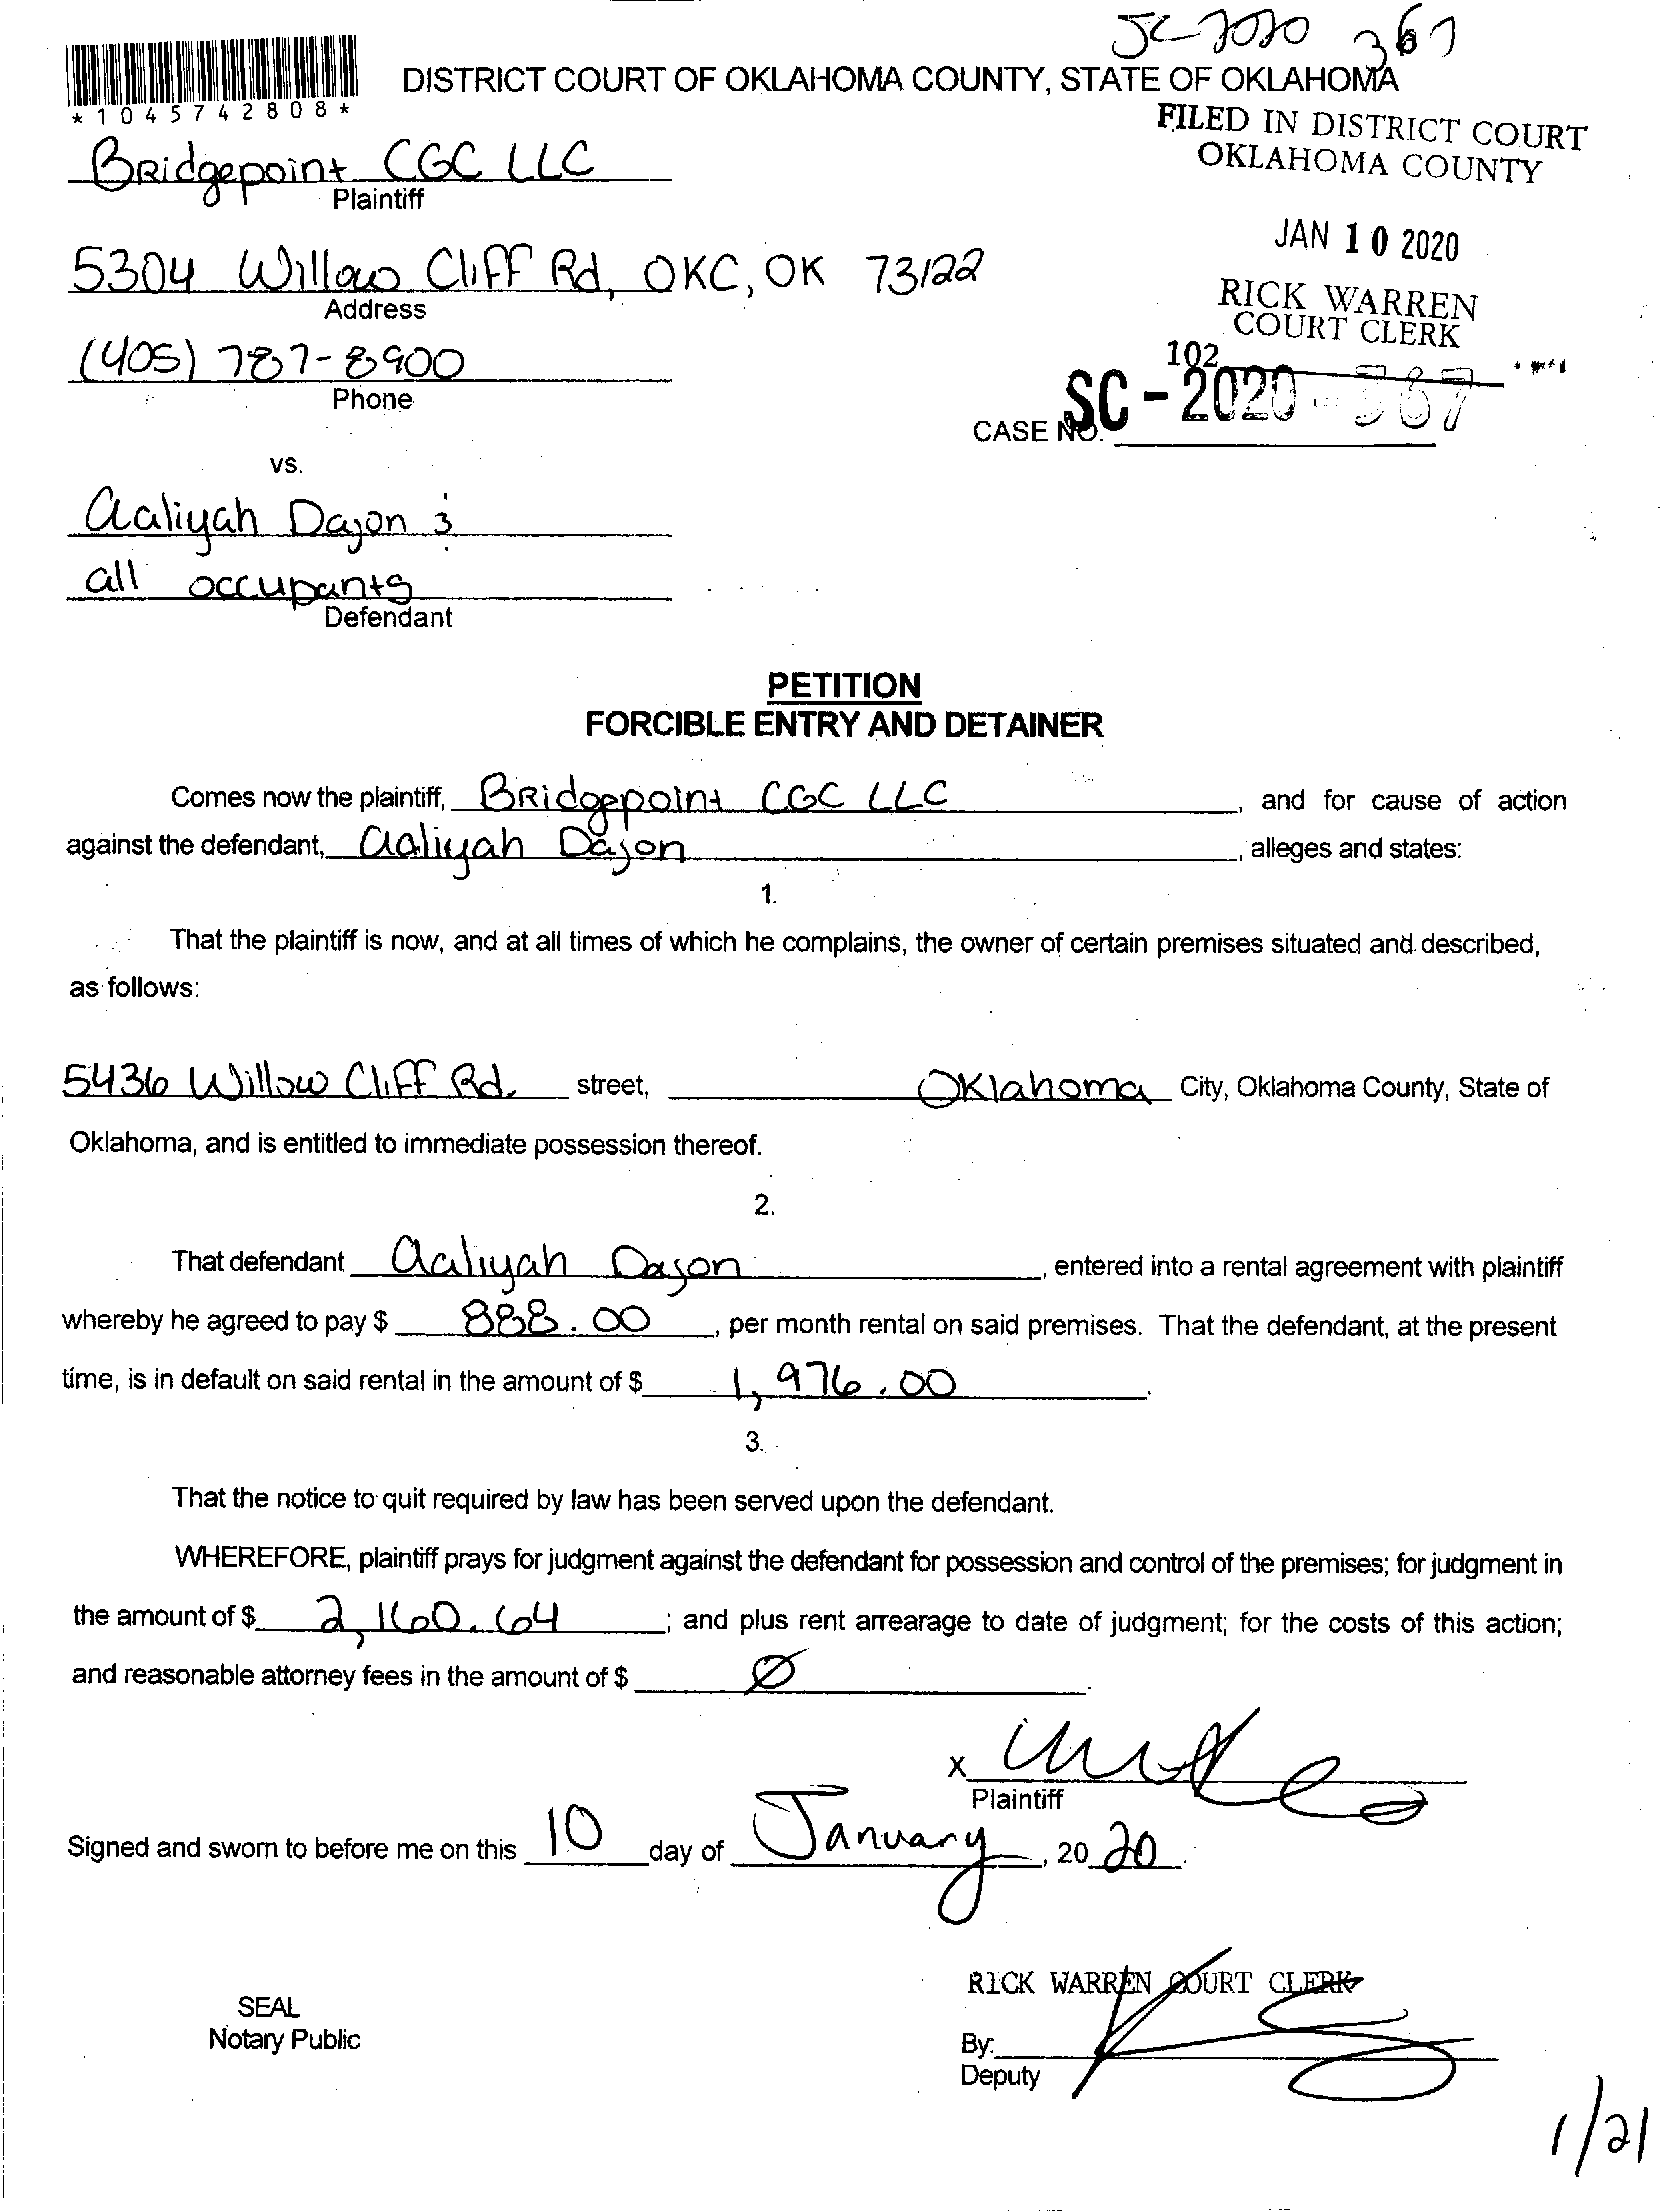 SC-2020 367
DISTRICT COURT OF OKLAHOMA COUNTY, STATE OF OKLAHOMA
*1045742808*
FILED IN DISTRICT COURT
OKLAHOMA COUNTY
Bridgepoint CGC LLC
Plaintiff
JAN 10 2020
5304 Willow Cliff Rd, OKC, OK 73122
Address
RICK WARREN
COURT CLERK
(405) 787-8900
Phone
102
CASE NO. SC-2020-367
vs.
Aaliyah Dajon &
all occupants
Defendant
PETITION
FORCIBLE ENTRY AND DETAINER
Comes now the plaintiff, Bridgepoint CGC LLC, and for cause of action
against the defendant, Aaliyah Dajon, alleges and states:
1.
That the plaintiff is now, and at all times of which he complains, the owner of certain premises situated and described,
as follows:
5436 Willow Cliff Rd. street, Oklahoma City, Oklahoma County, State of
Oklahoma, and is entitled to immediate possession thereof.
2.
That defendant Aaliyah Dajon, entered into a rental agreement with plaintiff
whereby he agreed to pay $ 888.00, per month rental on said premises. That the defendant, at the present
time, is in default on said rental in the amount of $ 1,976.00.
3.
That the notice to quit required by law has been served upon the defendant.
WHEREFORE, plaintiff prays for judgment against the defendant for possession and control of the premises; for judgment in
the amount of $ 2,160.64; and plus rent arrearage to date of judgment; for the costs of this action;
and reasonable attorney fees in the amount of $ Ø.
X
Plaintiff
Signed and sworn to before me on this 10 day of January, 2020.
RICK WARREN COURT CLERK
SEAL
Notary Public
By:
Deputy
1/21